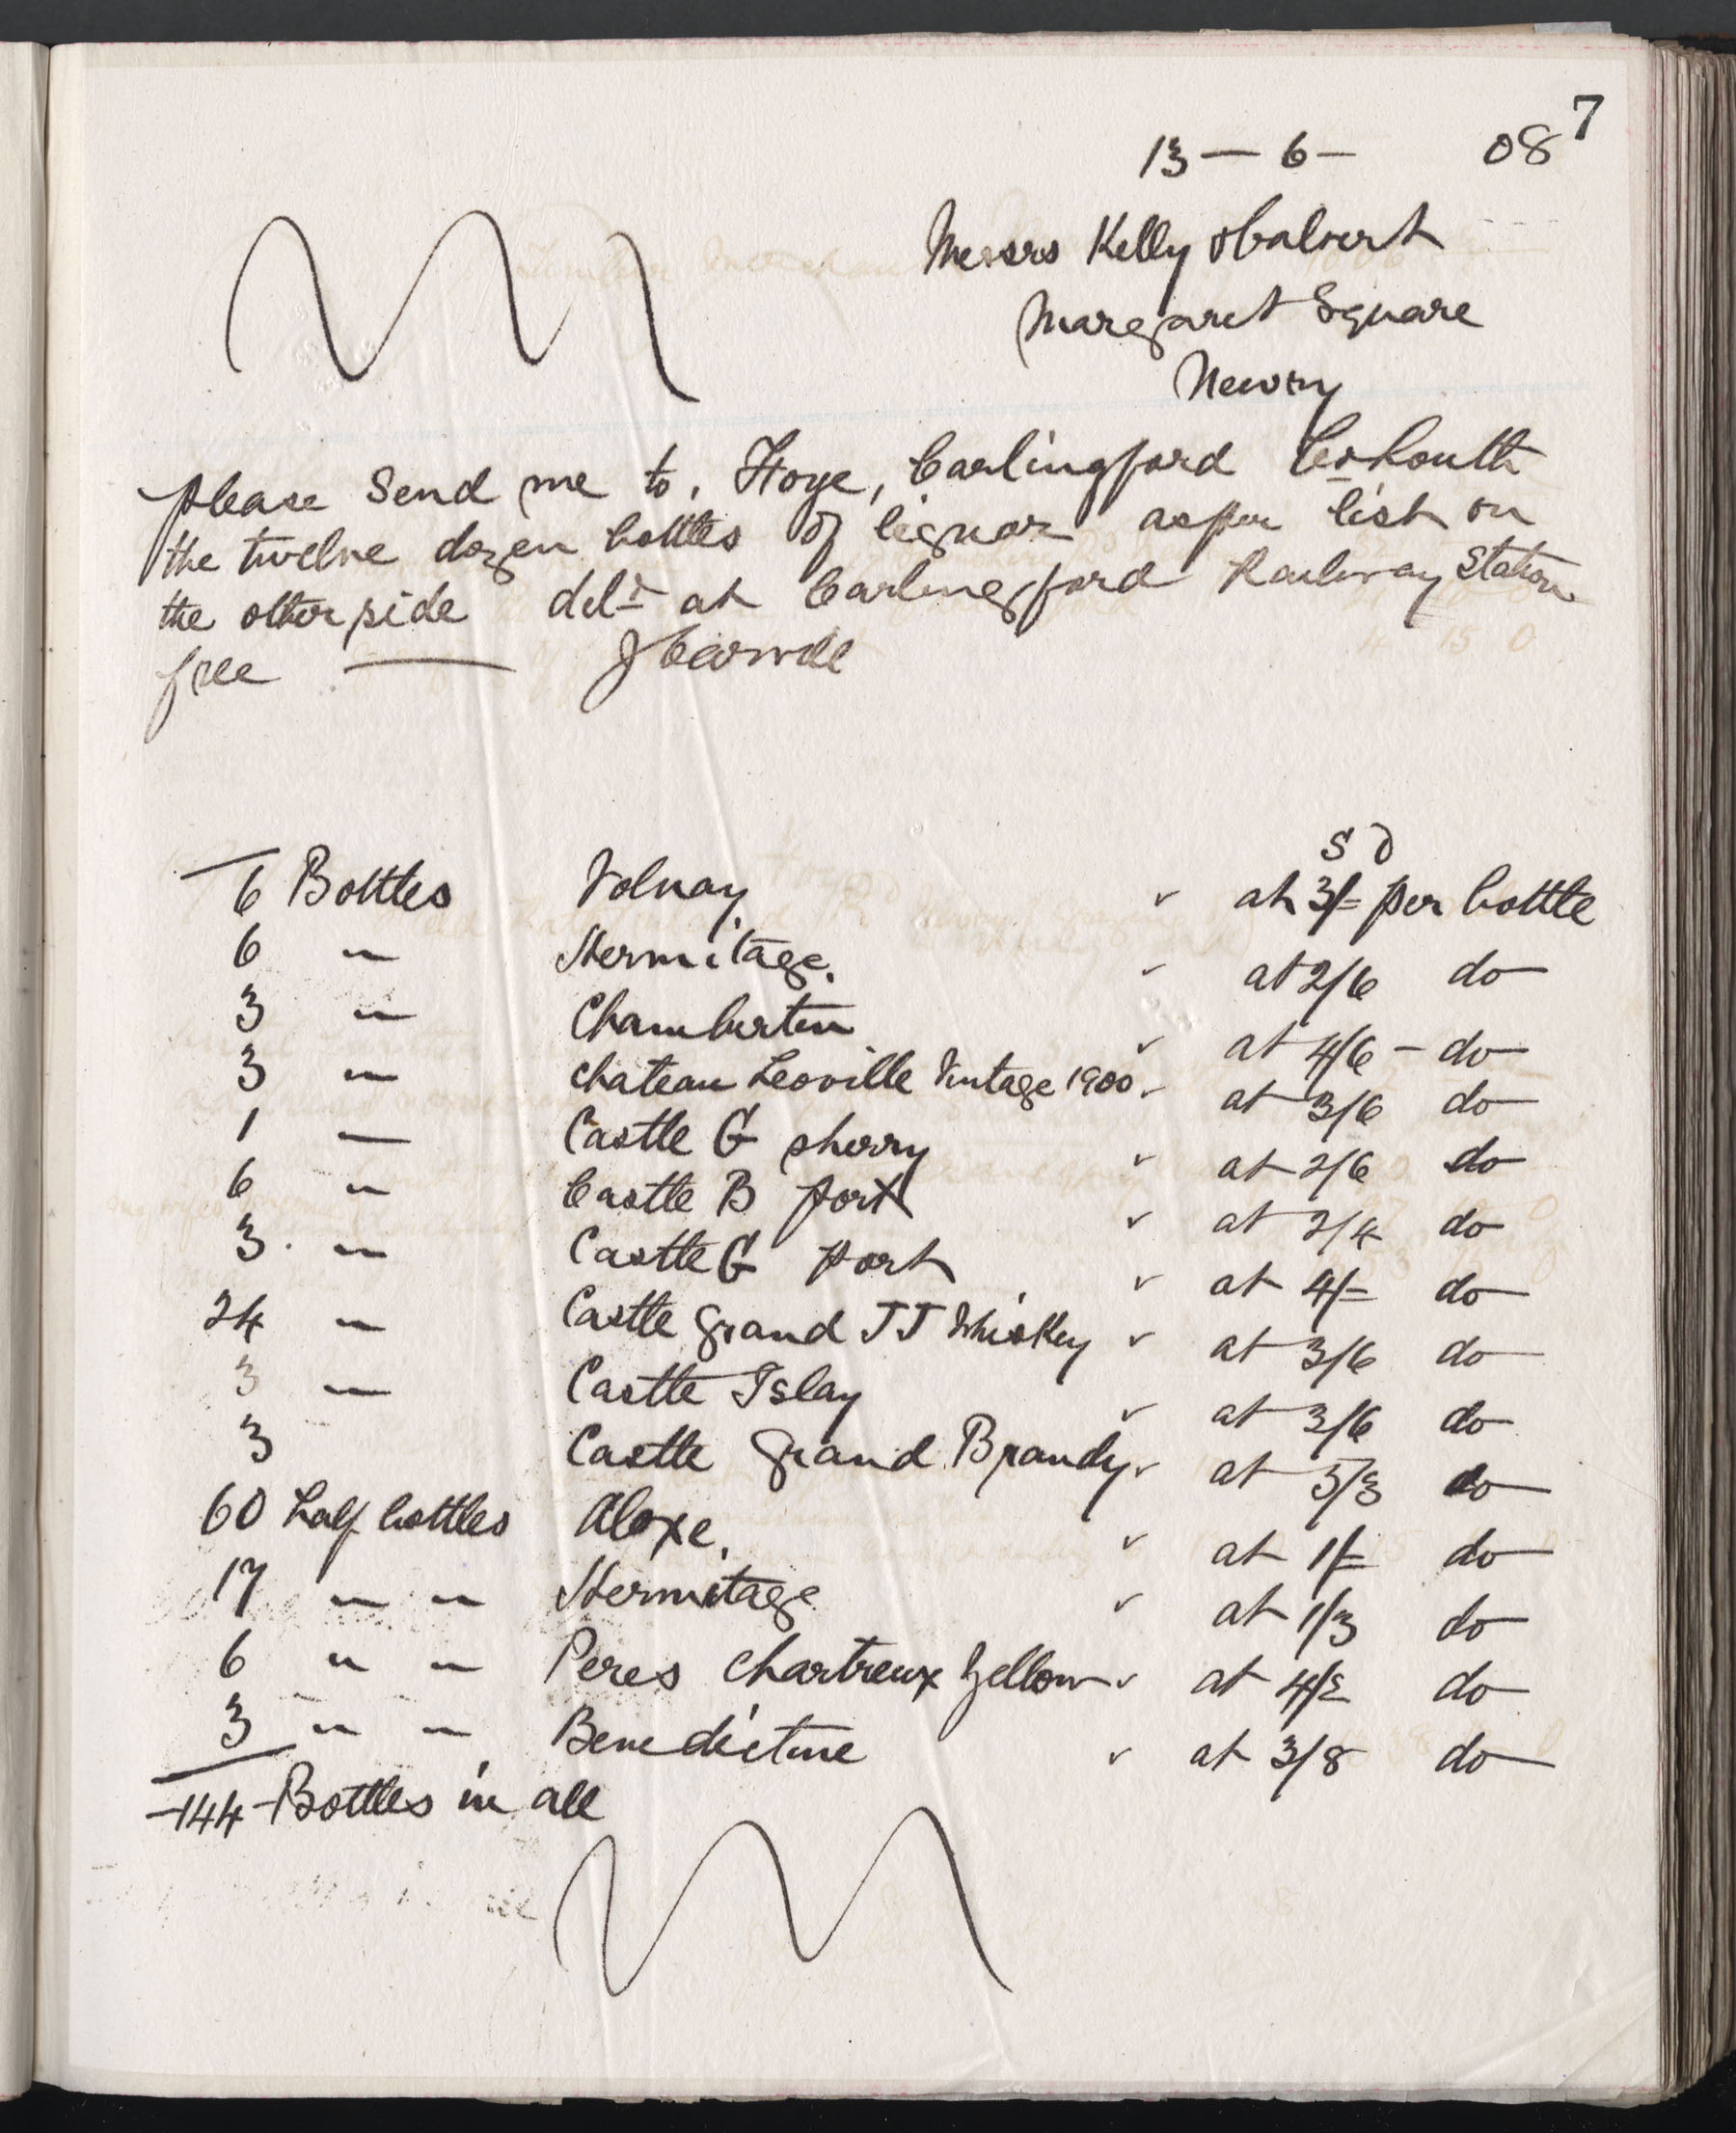 7
13 — 6 — 08
Messrs Kelly & Calvert
Margaret Square
Newry
please Send me to, Hoye, Carlingford Co Louth
the twelve dozen bottles of liquor as per list on
the other side deld at Carlingford Railway Station
free —
S D
6 Bottles Volnay ✓ at 3/= per bottle
6 〃 Hermitage. ✓ at 2/6 do
3 〃 Chambertin ✓ at 4/6 – do
3 〃 chateau Leoville Vintage 1900 ✓ at 3/6 do
1 — Castle G sherry ✓ at 2/6 do
6 〃 Castle B port ✓ at 2/4 do
3 . 〃 Castle G port ✓ at 4/= do
24 〃 Castle Grand JJ Whiskey ✓ at 3/6 do
3 〃 Castle Islay ✓ at 3/6 do
3 Castle Grand Brandy ✓ at 5/3 do
60 half bottles Aloxe. ✓ at 1/= do
17 〃 〃 Hermitage ✓ at 1/3 do
6 〃 〃 Peres Chartreux Yellow ✓ at do
3 〃 〃 Benedictine ✓ at 3/8 do
–144– Bottles in all